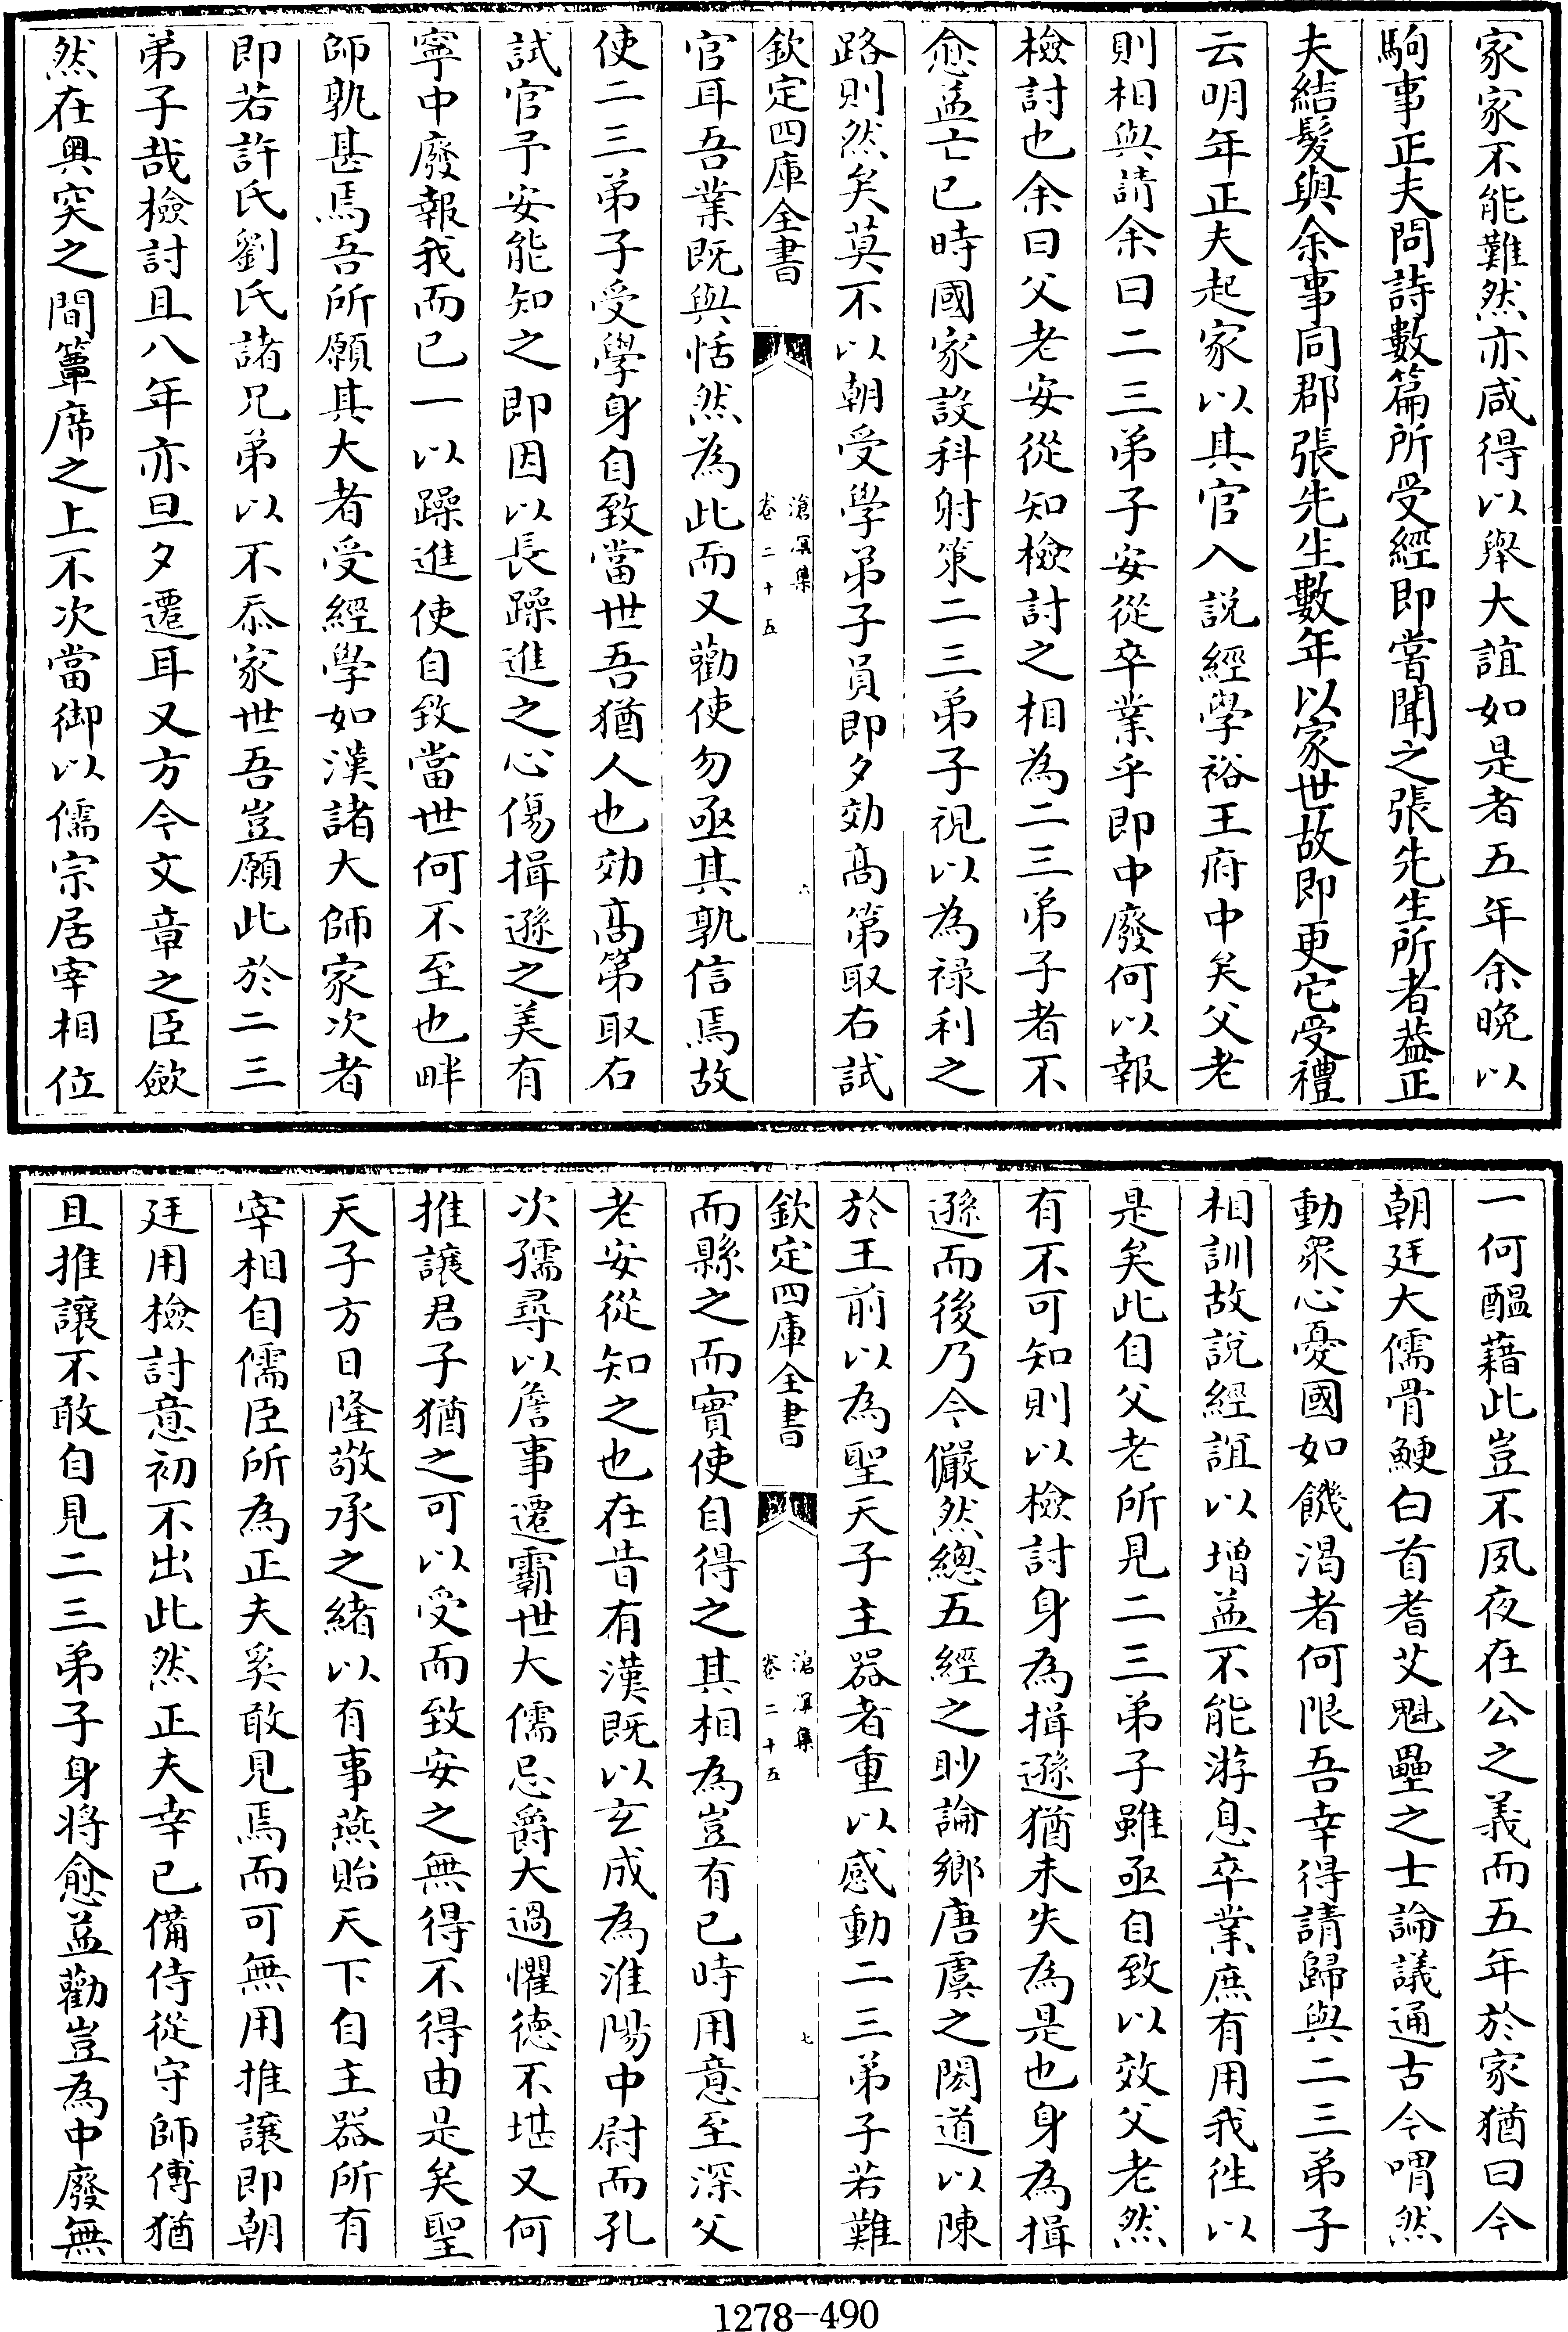 家家不能難然亦咸得以舉大誼如是者五年余晚以
駒事正夫問詩數篇所受經即嘗聞之張先生所者葢正
夫結髮與余事同郡張先生數年以家世故即更它受禮
云明年正夫起家以其官入説經學裕王府中矣父老
則相與請余曰二三弟子安從卒業乎即中廢何以報
檢討也余曰父老安從知檢討之相為二三弟子者不
愈益亡已時國家設科射策二三弟子視以為禄利之
路則然矣莫不以朝受學弟子員即夕効髙第取右試
欽定四庫全書
滄溟集
卷二十五
六
官耳吾業既與恬然為此而又勸使勿亟其孰信焉故
使二三弟子受學身自致當世吾猶人也効髙第取右
試官予安能知之即因以長躁進之心傷揖遜之美有
寧中廢報我而已一以躁進使自致當世何不至也畔
師孰甚焉吾所願其大者受經學如漢諸大師家次者
即若許氏劉氏諸兄弟以不忝家世吾豈願此於二三
弟子哉檢討且八年亦旦夕遷耳又方今文章之臣歛
然在奥突之間簟席之上不次當御以儒宗居宰相位
一何醖藉此豈不夙夜在公之義而五年於家猶曰今
朝廷大儒骨鯁白首耆艾魁壘之士論議通古今喟然
動衆心憂國如饑渴者何限吾幸得請歸與二三弟子
相訓故説經誼以增益不能游息卒業庶有用我徃以
是矣此自父老所見二三弟子雖亟自致以效父老然
有不可知則以檢討身為揖遜猶未失為是也身為揖
遜而後乃今儼然總五經之眇論鄉唐虞之閎道以陳
於王前以為聖天子主器者重以感動二三弟子若難
欽定四庫全書
滄溟集
卷二十五
七
而縣之而實使自得之其相為豈有已時用意至深父
老安從知之也在昔有漢既以玄成為淮陽中尉而孔
次孺尋以詹事遷霸世大儒忌爵大過懼德不堪又何
推讓君子猶之可以受而致安之無得不得由是矣聖
天子方日隆敬承之緒以有事燕貽天下自主器所有
宰相自儒臣所為正夫奚敢見焉而可無用推讓即朝
廷用檢討意初不出此然正夫幸已備侍從守師傅猶
且推讓不敢自見二三弟子身將愈益勸豈為中廢無
1278-490